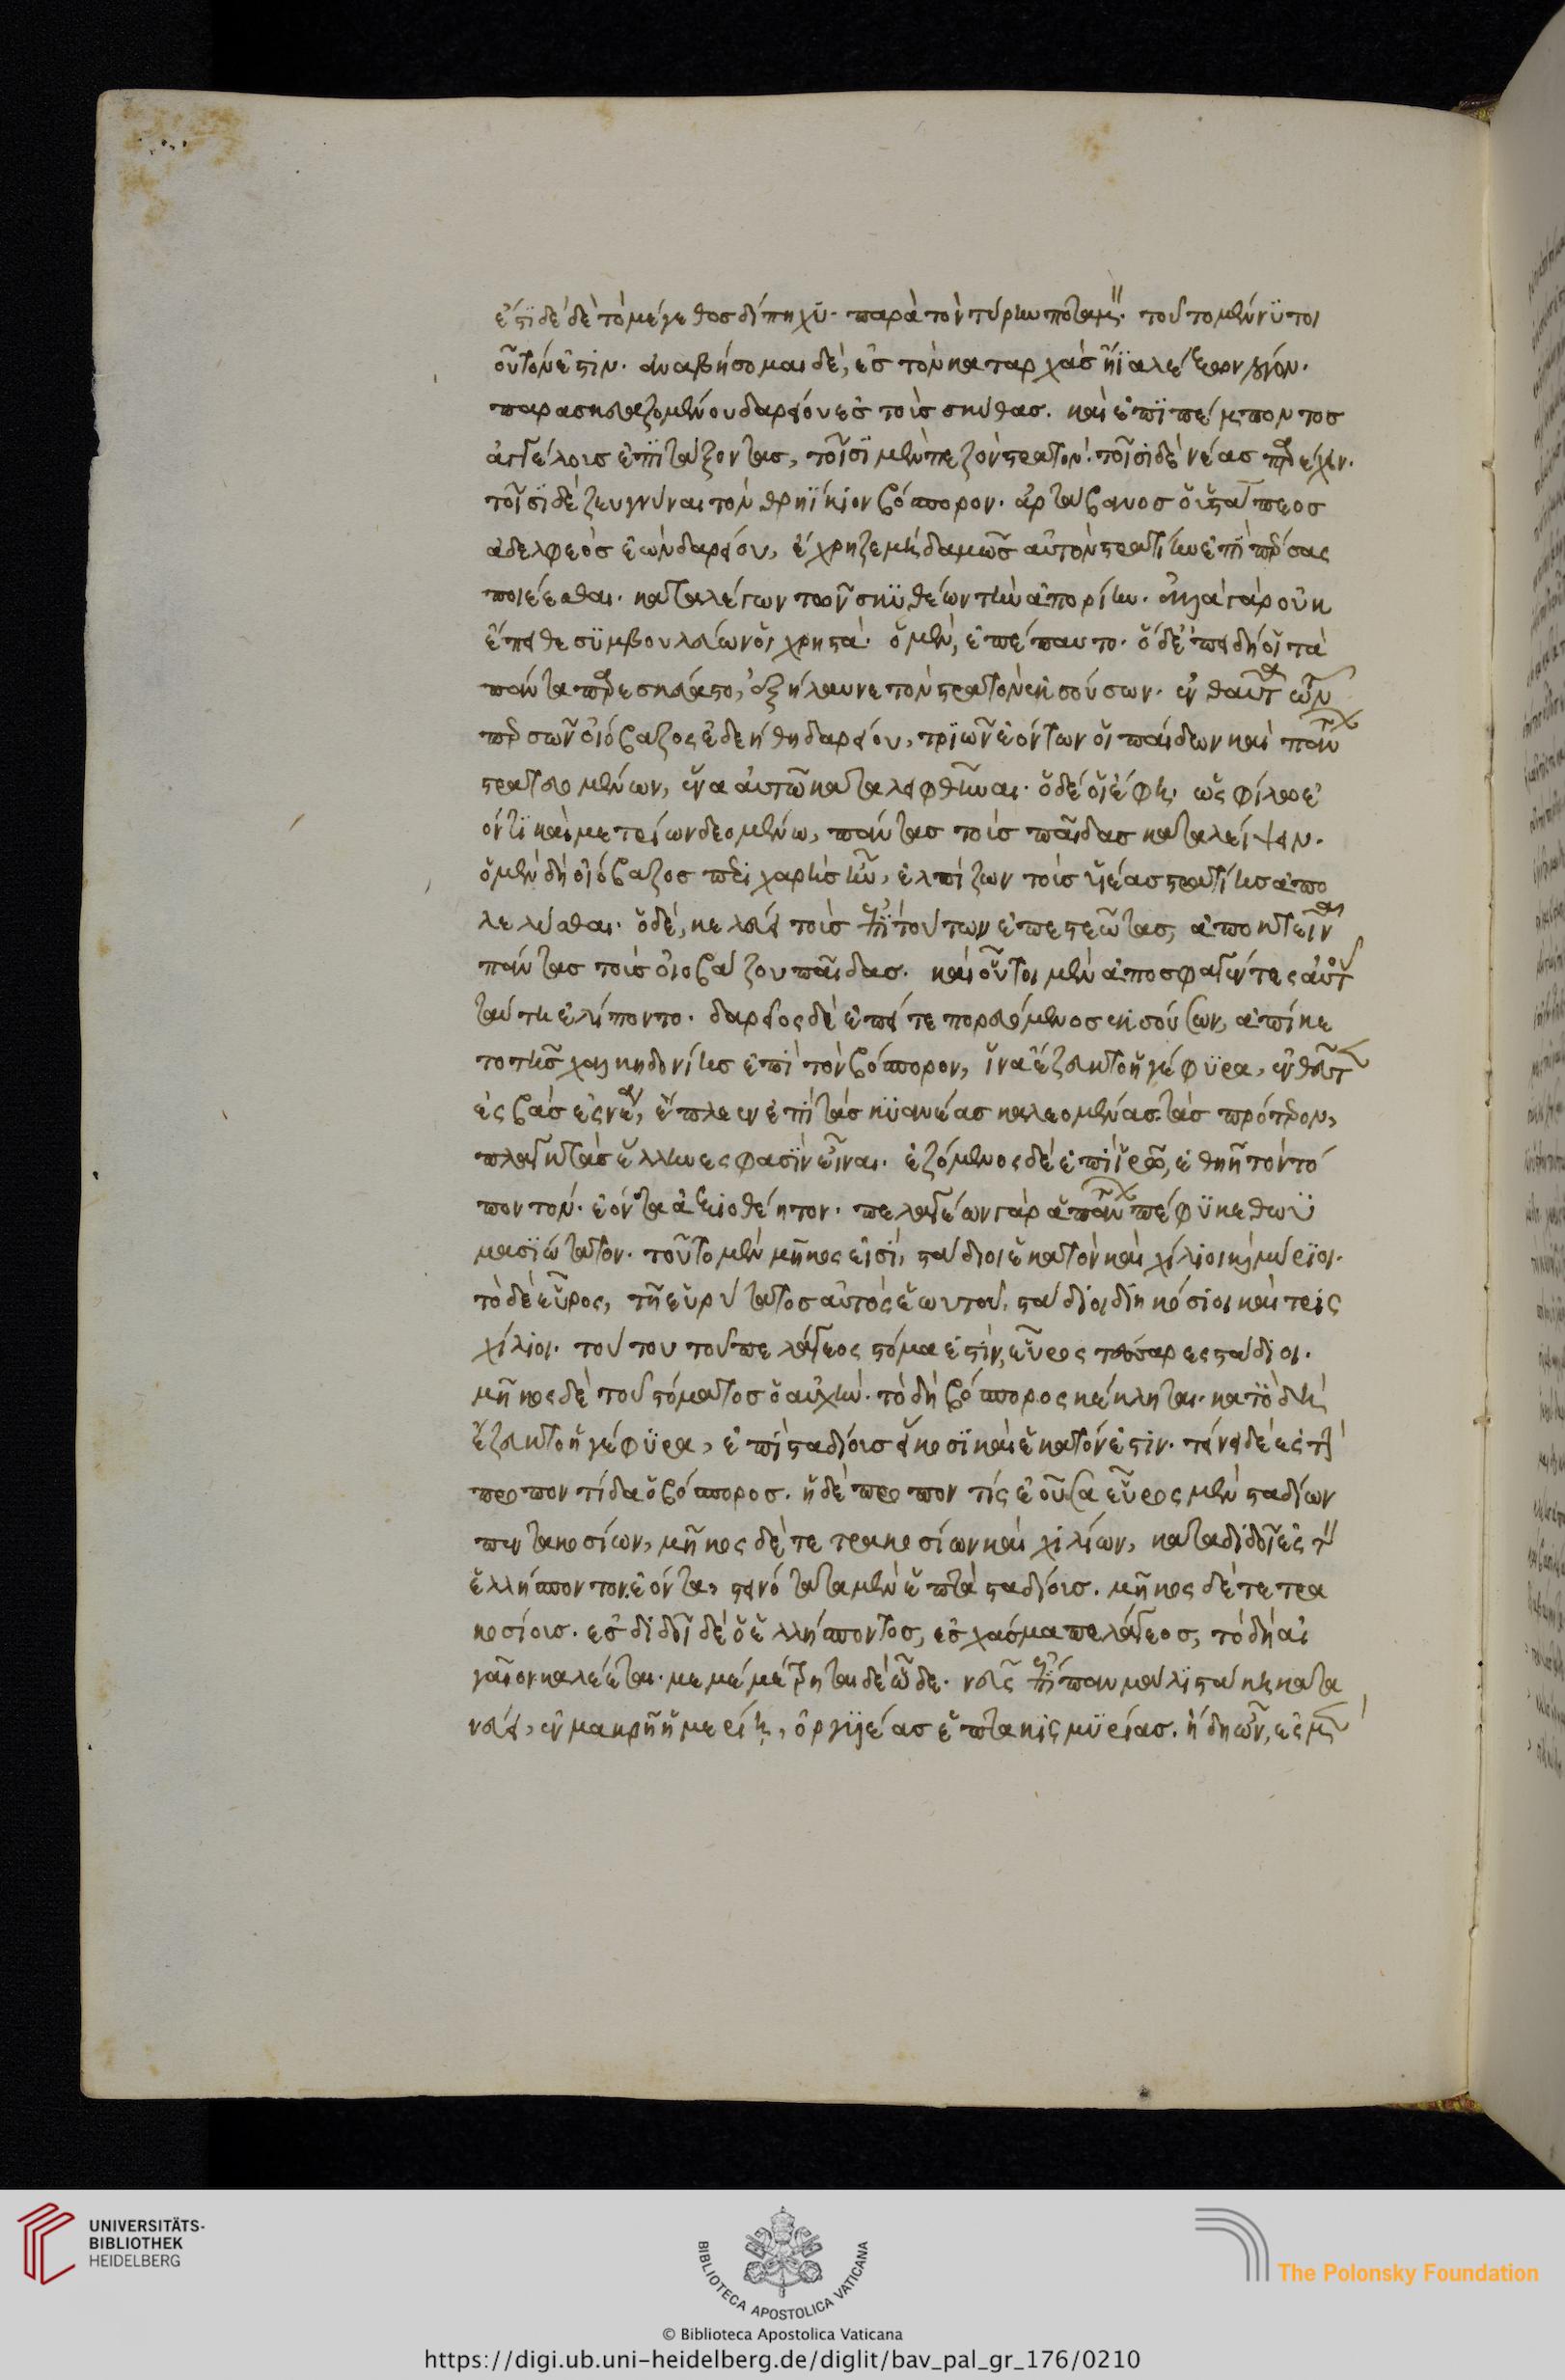 ἐστὶ δὲ δὲ τὸ μέγεθος δίπηχυ· παρὰ τὸν τύρην ποταμόν. τοῦτο μέν νυ τοι
οὗτόν ἐστιν. ἀναβήσομαι δέ, ἐς τὸν καταρχὰς ἤϊα λέξων λόγον.
παρασκευαζομένου δαρείου ἐς τοὺς σκύθας. καὶ ἐπιπέμποντος
ἀγγέλους ἐπιτάξοντας, τοῖσι μὲν πεζὸν στρατόν. τοῖσι δὲ νέας παρέχειν.
τοῖσι δὲ ζευγνύναι τὸν θρηΐκιον βόσπορον. ἀρτάβανος ὁ ὑστάσπεος
ἀδελφεὸς ἐὼν δαρείου, ἐχρηζε μηδαμῶς αὐτὸν στρατιὴν ἐπὶ σκύθας
ποιέεσθαι. καταλέγων τῶν σκυθέων τὴν ἀπορίην. ἀλλὰ γὰρ οὐκ
ἔπειθε συμβουλεύων οἱ χρηστά. ὁ μὲν, ἐπέπαυτο. ὁ δὲ ἐπειδὴ οἱ τὰ
πάντα παρεσκεύαστο, ἐξήλαυνε τὸν στρατὸν ἐκ σούσων. ἐνθαῦτα τῶν
περσῶν οἰόβαζος ἐδεήθη δαρείου, τριῶν ἐόντων οἱ παίδων καὶ πάντων
στρατευομένων, ἕνα αὐτῶ καταλειφθῆναι. ὁ δέ οἱ ἔφη ὡς φίλω ἐ
όντι καὶ μετρίων δεομένω, πάντας τοὺς παῖδας καταλείψειν.
ὁ μὲν δὴ οἰόβαζος περιχαρὴς ἦν, ἐλπίζων τοὺς υἱέας στρατιῆς ἀπο
λελύσθαι. ὁ δέ, κελεύει τοὺς ἐπὶ τούτων ἐπεστεῶτας, ἀποκτεῖναι
πάντας τοὺς οἰοβάζου παῖδας. καὶ οὗτοι μὲν ἀποσφαγέντες αὐτοῦ
ταύτη ἐλίποντο. δαρεῖος δὲ ἐπείτε πορευόμενος ἐκ σούσων, ἀπίκε
το τῆς χαλκηδονίης ἐπὶ τὸν βόσπορον, ἵνα ἔζευκτο ἡ γέφυρα, ἐνθεῦτεν
ἐσβὰς ἐς νέα, ἔπλεεν ἐπὶ τὰς κυανέας καλεομένας. τὰς πρότερον,
πλαγκτὰς ἕλληνες φασὶν εἶναι. ἑζόμενος δὲ ἐπὶ ἱρῶ, ἐθηῆτο τὸν πό
ντον. ἐόντα ἀξιοθέητον. πελαγέων γὰρ ἁπάντων πέφυκε θωυ
μασιώτατον. τοῦ τὸ μὲν μῆκος εἰσί, στάδιοι ἑκατὸν καὶ χίλιοι καὶ μύριοι.
τὸ δὲ εὖρος, τῆ εὐρύτατος αὐτὸς ἑωυτοῦ, στάδιοι διηκόσιοι καὶ τρις
χίλιοι. τούτου τοῦ πελάγεος στόμα ἐστὶν, εὖρος τέσσαρες στάδιοι.
μῆκος δὲ τοῦ στόματος ὁ αὐχὴν. τὸ δὴ βόσπορος κέκληται. κατὸ δὴ
ἔζευκτο ἡ γέφυρα, ἐπὶ σταδίους εἴκοσι καὶ ἑκατόν ἐστιν. τείνει δὲ ἐς τὴν
προποντίδα ὁ βόσπορος. ἡ δὲ προποντὶς ἐοῦσα εὖρος μὲν σταδίων
πεντακοσίων, μῆκος δὲ τετρακοσίων καὶ χιλίων, καταδιδοῖ ἐς τὸν
ἑλλήσποντον ἐόντα, στεινότατα μὲν ἑπτὰ σταδίους. μῆκος δὲ τετρα
κοσίους. ἐσδιδοῖ δὲ ὁ ἑλλήσποντος, ἐς χάσμα πελάγεος, τὸ δὴ αἰ
γαῖον καλέεται. μεμέμέτρηται δὲ ὧδε. νεῦς ἐπίπαν μάλιστά κη κατα
νύει, ἐν μακρῆ ἡμερίη, ὀργυιέας ἑπτακις μυρίας. ἤδη ὦν, ἐς μὲν
UNIVERSITÄTS-
BIBLIOTHEK
HEIDELBERG
BIBLIOTECA APOSTOLICA VATICANA
The Polonsky Foundation
© Biblioteca Apostolica Vaticana
https://digi.ub.uni-heidelberg.de/diglit/bav_pal_gr_176/0210